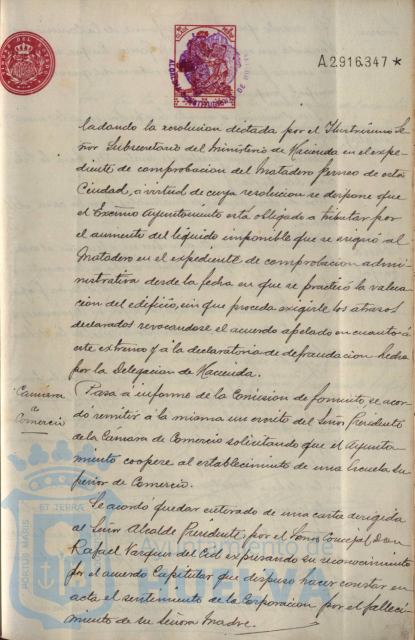 A2916347*
ladando la resolucion dictada por el Ilustrisimo Se
ñor Subsecretario del Ministerio de Hacienda en el expe-
diente de comprobacion del Matadero ferreo de esta
Ciudad, á virtud de cuya resolucion se dispone que
el Excmo Ayuntamiento está obligado a tributar por
el aumento del liquido imponible que se asignó al
Matadero en el expediente de comprobacion admi-
nistrativa desde la fecha en que se practicó la valua-
cion del edificio, sin que proceda exigirle los atrasos
declarados revocandose el acuerdo apelado en cuanto á
este extremo y á la declaratoria de defraudacion hecha
por la Delegacion de Hacienda.
Camara
de
Comercio
Pasa a informe de la Comision de fomento se acor
dó remitir á la misma un escrito del Señor Presidente
de la Cámara de Comercio solicitando que el Ayunta-
miento coopere al establecimiento de una Escuela su
perior de Comercio.
Se acordó quedar enterado de una carta dirigida
al Señor Alcalde Presidente por el Señor Concejal Don
Rafael Vazquez del Cid expresando su reconocimiento
por el acuerdo Capitular que dispuso hacer constar en
acta el sentimiento de la Corporacion por el falleci
miento de su Señora Madre.
PORTUS MARIS
ET TERRAE
Ayuntamiento de
HUELVA